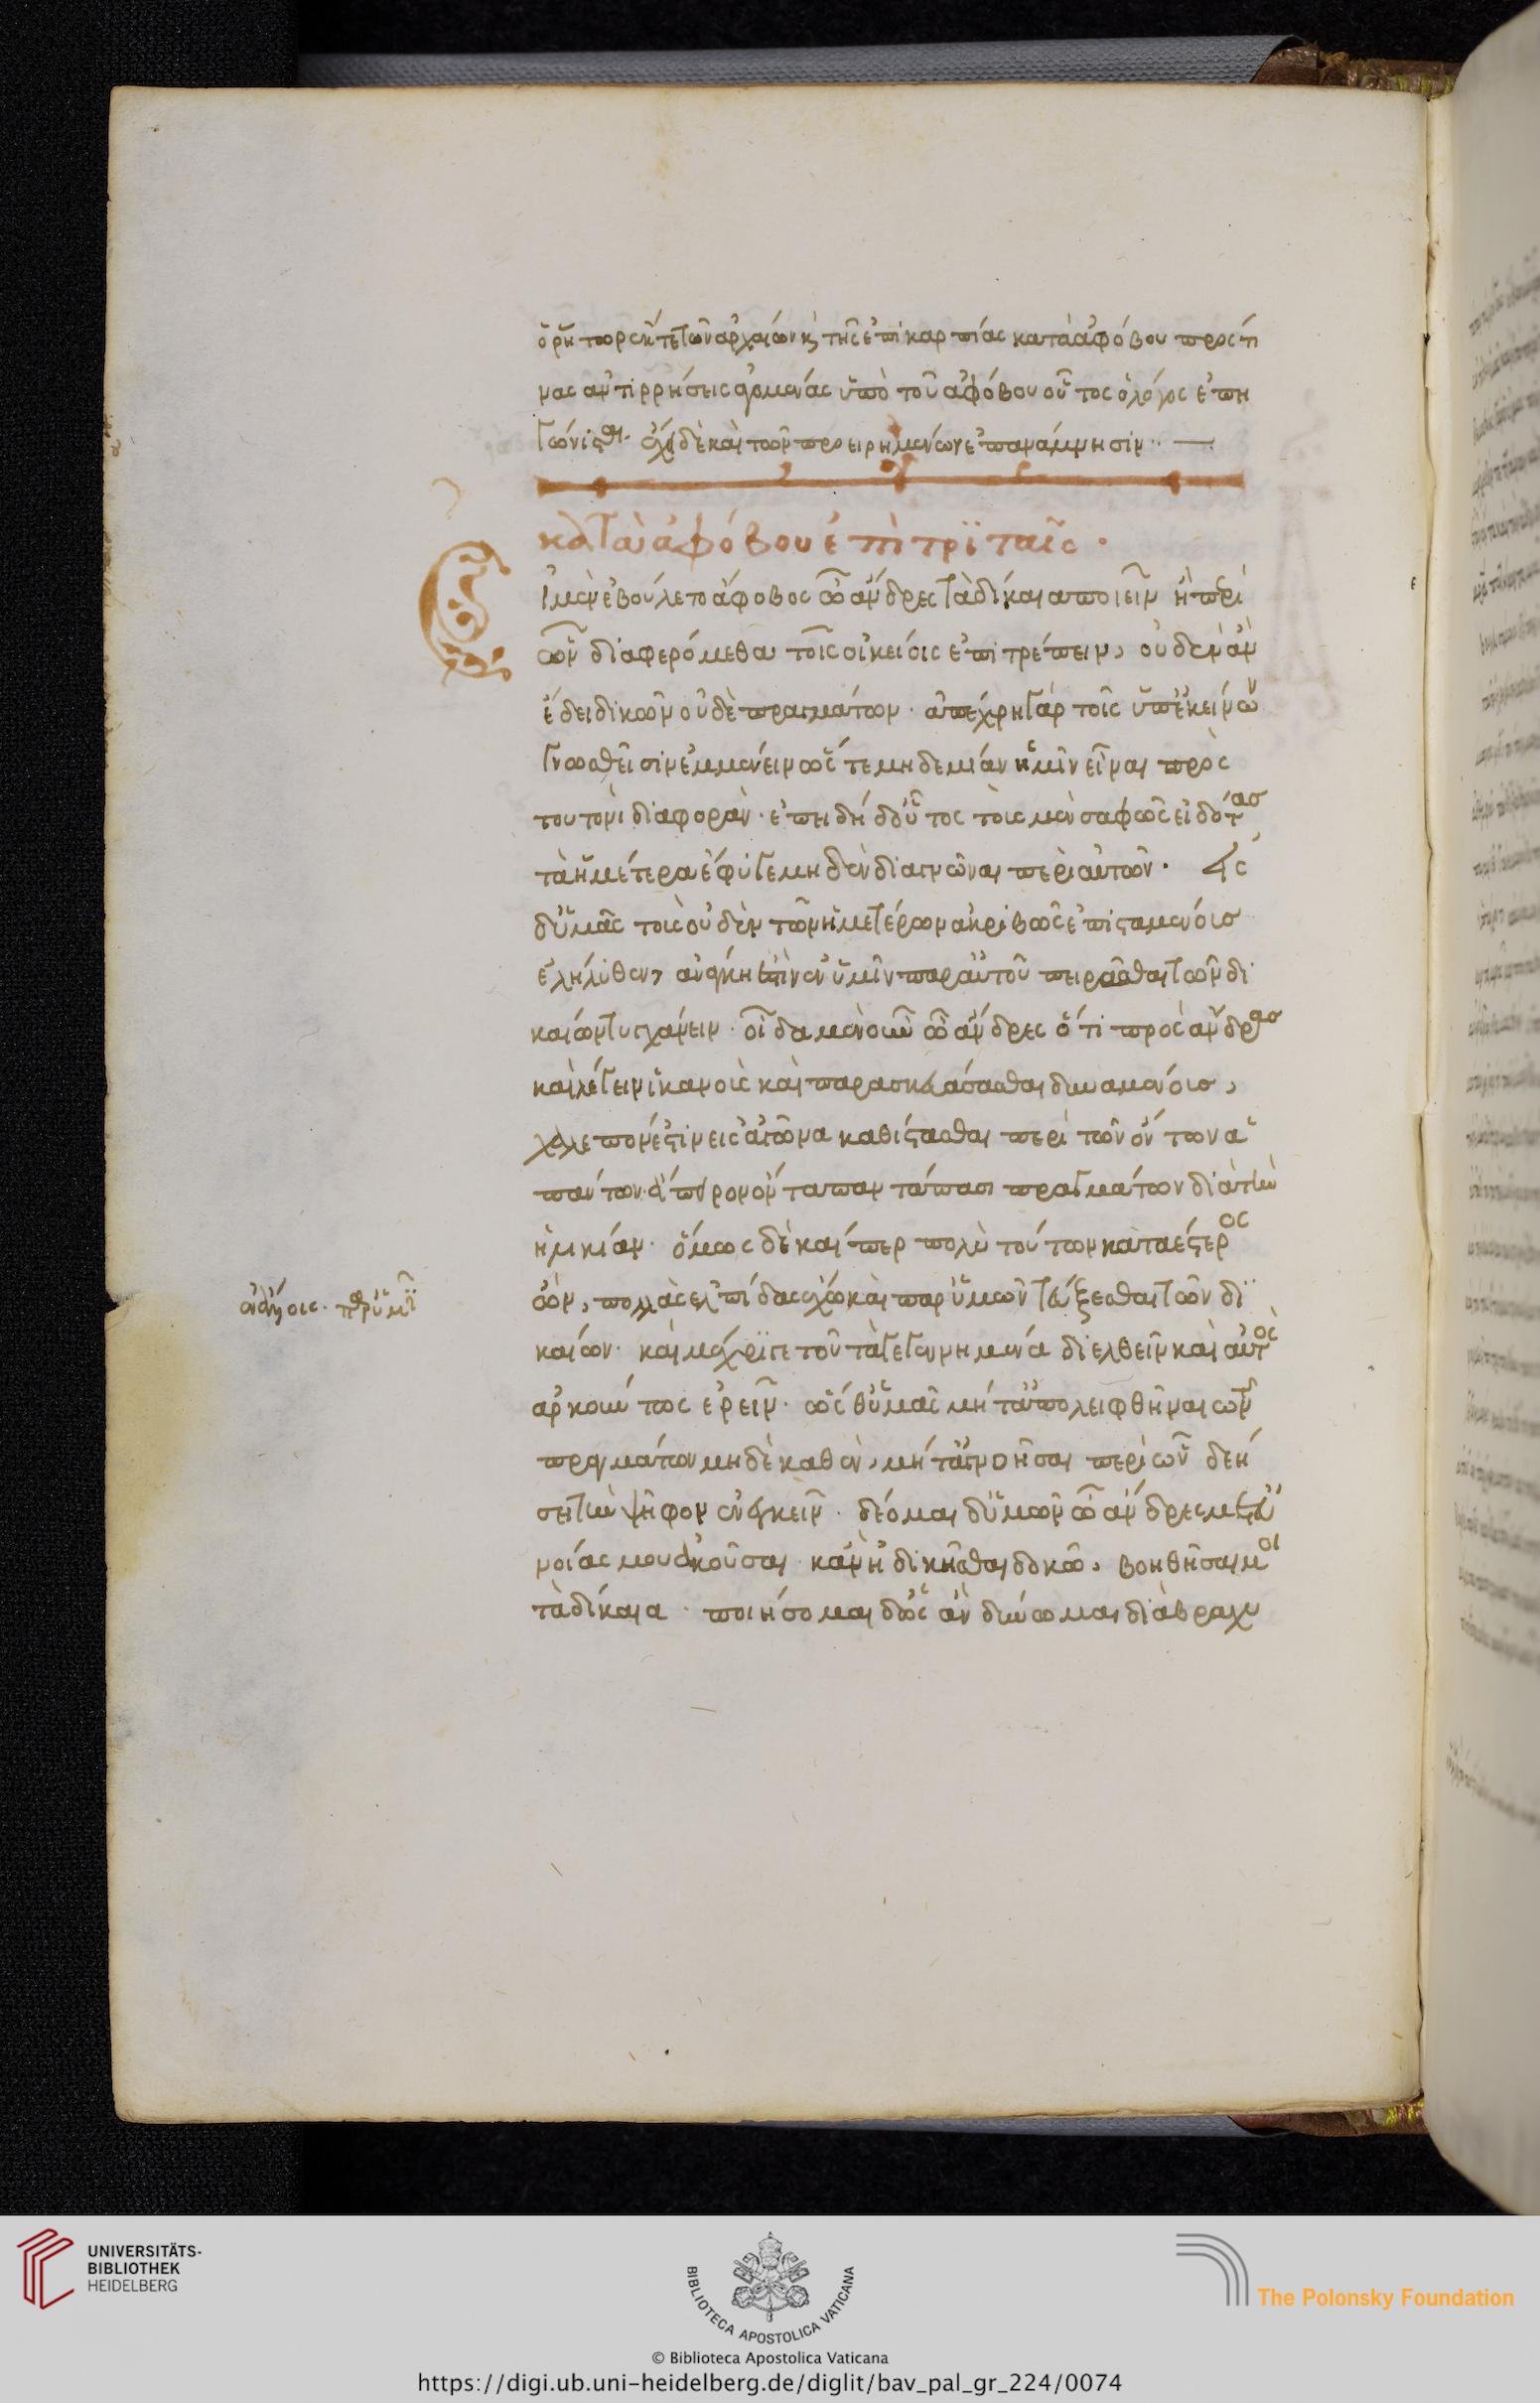 ὁ ῥήτωρ ἔκ τε τῶν ἀρχαίων κ τῆς ἐπικαρπίας κατὰ ἀφόβου πρός τι
νας ἀντιρρήσεις γομένας ὑπὸ τοῦ ἀφόβου οὗτος ὁ λόγος ἐπη
γώνισται. ἔχει δὲ καὶ τῶν προειρημένων ἐπανάμνησιν
κατὰ ἀφόβου ἐπιτρϊταῖς ·
Εἰ μὲν ἐβούλετο ἄφοβος ὦ ἄνδρες τὰ δίκαια ποιεῖν ἢ περὶ
ὧν διαφερόμεθα τοῖς οἰκείοις ἐπιτρέπειν, οὐδὲν ἂν
ἔδει δικῶν οὐδὲ πραγμάτων · ἀπέχρη γὰρ τοῖς ὑπ' ἐκείνων
γνωσθεῖσιν ἐμμένειν ὥστε μηδεμίαν ἡμῖν εἶναι πρὸς
τουτονὶ διαφοράν · ἐπειδὴ δ' οὗτος τοὺς μὲν σαφῶς εἰδότας
τὰ ἡμέτερα ἔφυγε μηδὲν διαγνῶναι περὶ αὐτῶν · εἰς
δ' ὑμᾶς τοὺς οὐδὲν τῶν ἡμετέρων ἀκριβῶς ἐπισταμένους
ἐλήλυθεν, ἀνάγκη ἐστὶν ἐν ὑμῖν παρ' αὐτοῦ πειρᾶσθαι τῶν δι
καίων τυγχάνειν · οἶδα μὲν οὖν ὦ ἄνδρες ὅτι πρὸς ἄνδρας
καὶ λέγειν ἱκανοὺς καὶ παρασκευάσασθαι δυναμένους,
χαλεπόν ἐστιν εἰς ἀγῶνα καθίστασθαι περὶ τῶν ὄντων ἁ
πάντων ἄπειρον ὄντα παντάπασι πραγμάτων διὰ τὴν
ἡλικίαν · ὅμως δὲ καίπερ πολὺ τούτων καταδεέστερος
ὤν, πολλὰς ἐλπίδας ἔχω καὶ παρ' ὑμῶν τεύξεσθαι τῶν δι
καίων · καὶ μέχρϊ γε τοῦ τὰ γεγενημένα διελθεῖν καὶ αὐτὸς
ἀρκούντως ἐρεῖν · ὥσθ' ὑμᾶς μήτ' ἀπολειφθῆναι τῶν
πραγμάτων μηδὲ καθ' ἓν, μήτ' ἀγνοῆσαι περὶ ὧν δεή
σει τὴν ψῆφον ἐνεγκεῖν · δέομαι δ' ὑμῶν ὦ ἄνδρες μετ' εὐ
νοίας μου ἀκοῦσαι · κἂν ἠδικῆσθαι δοκῶ, βοηθῆσαι μοι
τὰ δίκαια · ποιήσομαι δ' ὡς ἂν δύνωμαι διὰ βραχυ
UNIVERSITÄTS-
BIBLIOTHEK
HEIDELBERG
BIBLIOTECA APOSTOLICA VATICANA
The Polonsky Foundation
© Biblioteca Apostolica Vaticana
https://digi.ub.uni-heidelberg.de/diglit/bav_pal_gr_224/0074